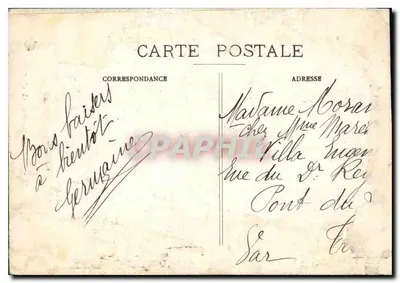 CARTE POSTALE
CORRESPONDANCE
ADRESSE
Bons baisers
à bientôt
Germaine
Madame Moran
chez Mme Mare
Villa Eugen
Rue du Dr Rey
Pont du
Var
CPAPHIL